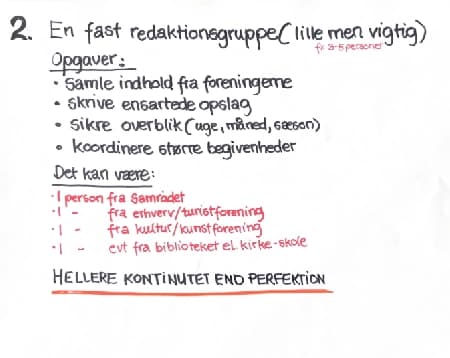 2. En fast redaktionsgruppe (lille men vigtig)
fx 3-5 personer
Opgaver:
• Samle indhold fra foreningerne
• Skrive ensartede opslag
• Sikre overblik (uge, måned, sæson)
• Koordinere større begivenheder
Det kan være:
·1 person fra Samrådet
·1 - fra erhverv/turistforening
·1 - fra kultur/kunstforening
·1 - evt fra biblioteket el. kirke-skole
HELLERE KONTINUTET END PERFEKTION